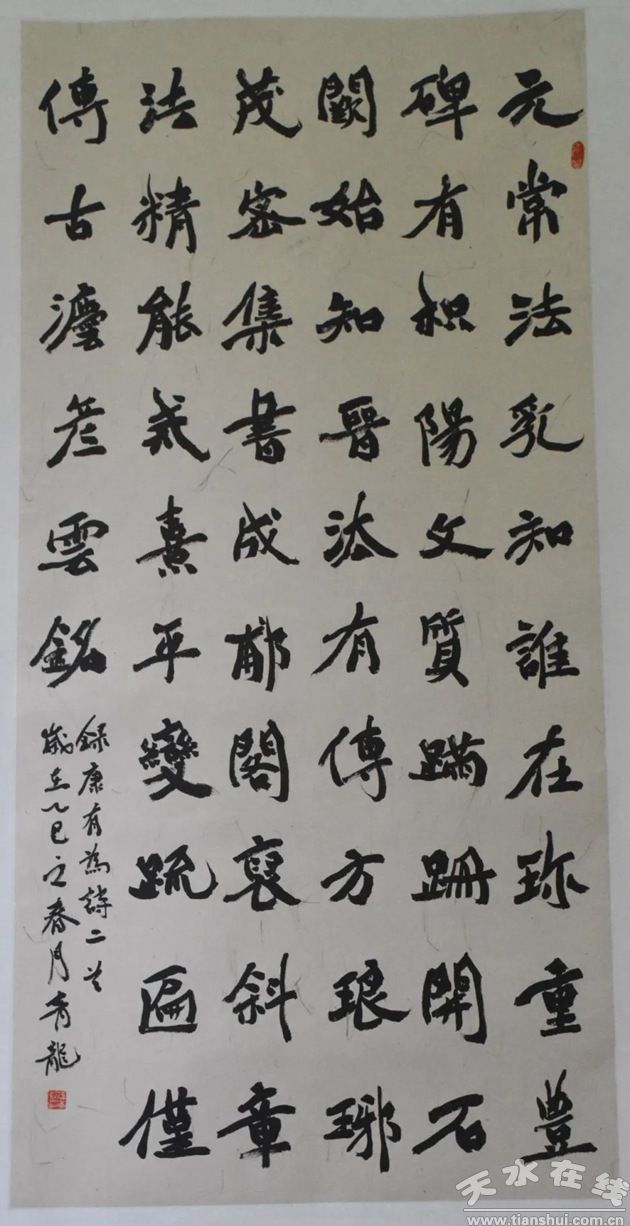 元常法乳知誰在珎重豊
碑有枳陽文質蹣跚開石
闕始知晉法有傳方琅琊
茂密集書成郙閣裒斜章
法精能熹平變疏匾僅
傳古瀍彦雲銘
録康有為詩二首
歲在乙巳之春月龍
天水在线
www.tianshui.com.cn